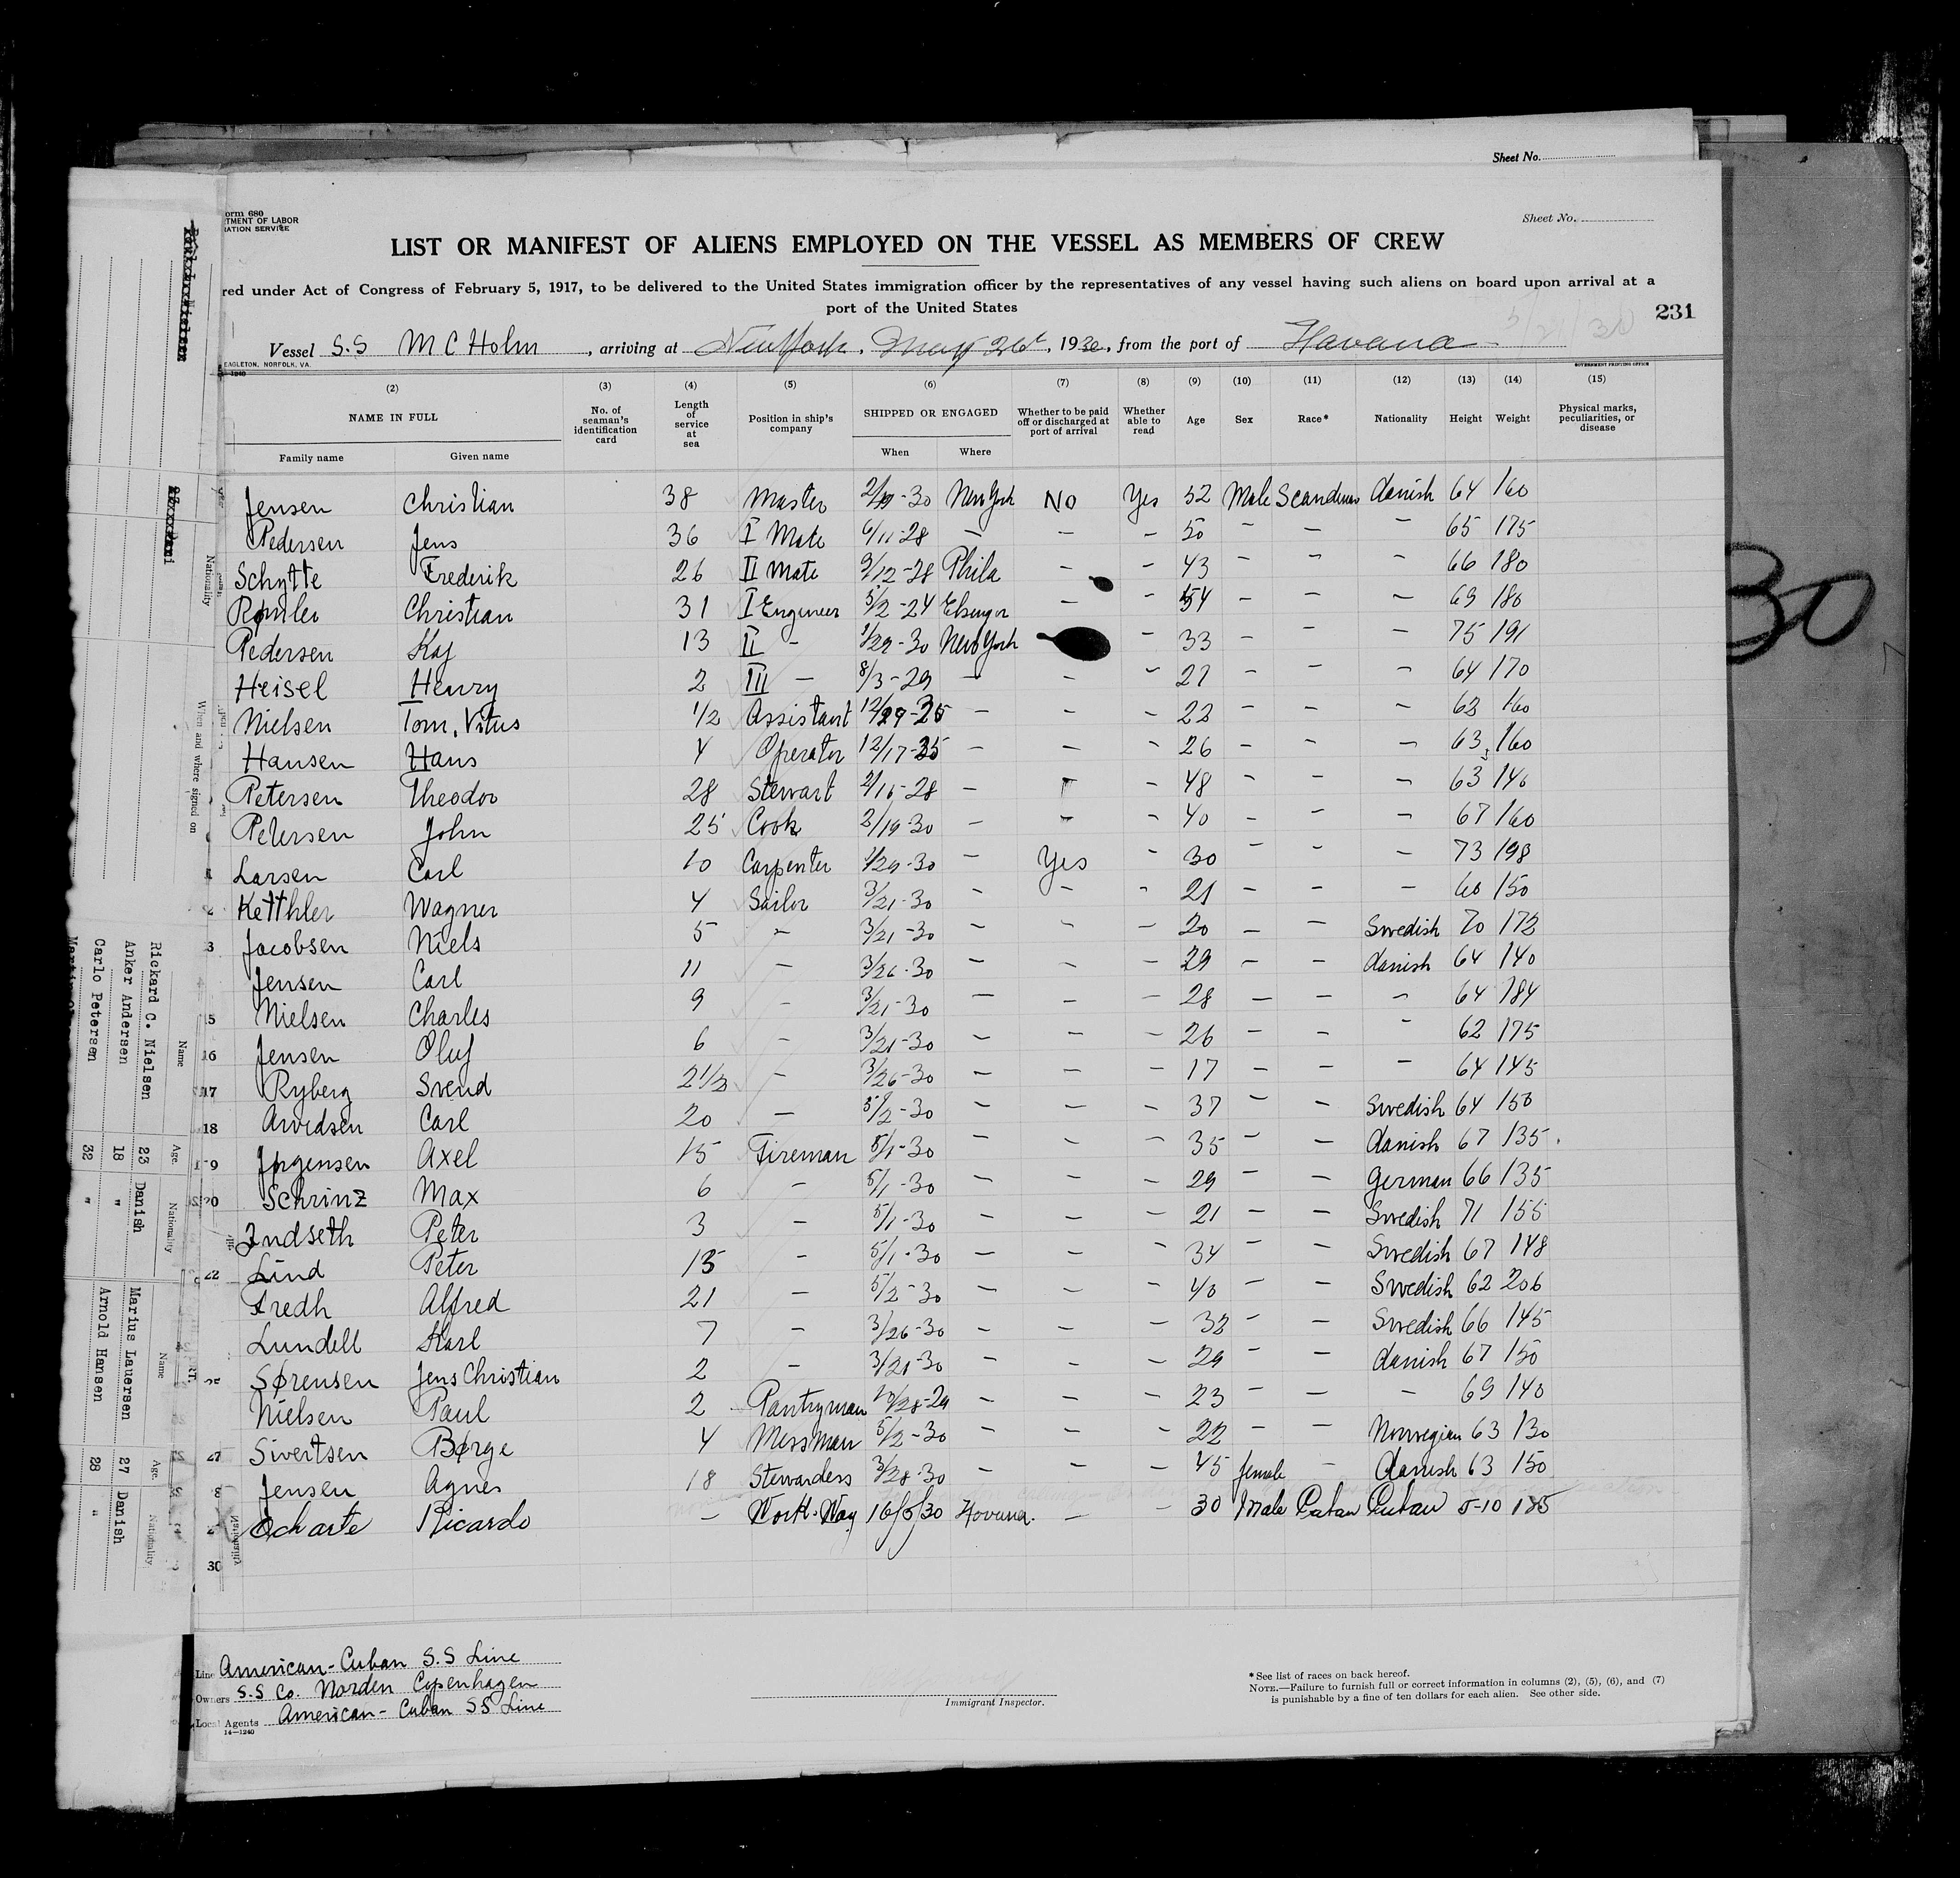 Sheet No.
orm 680
TMENT OF LABOR
ATION SERVICE
Sheet No.
LIST OR MANIFEST OF ALIENS EMPLOYED ON THE VESSEL AS MEMBERS OF CREW
red under Act of Congress of February 5, 1917, to be delivered to the United States immigration officer by the representatives of any vessel having such aliens on board upon arrival at a
port of the United States
231
Vessel S.S M C Holm, arriving at New York, May 21st, 1930, from the port of Havana
EAGLETON, NORFOLK, VA.
GOVERNMENT PRINTING OFFICE
(2) (3) (4) (5) (6) (7) (8) (9) (10) (11) (12) (13) (14) (15)
NAME IN FULL No. of seaman's identification card Length of service at sea Position in ship's company SHIPPED OR ENGAGED Whether to be paid off or discharged at port of arrival Whether able to read Age Sex Race* Nationality Height Weight Physical marks, peculiarities, or disease
Family name Given name When Where
Jensen Christian 38 Master 2/19-30 New York No Yes 52 Male Scandinav danish 64 160
Pedersen Jens 36 I Mate 6/11-28 — — — 50 — — — 65 175
Schytte Frederik 26 II Mate 9/12-28 Phila — — 43 — — — 66 180
Rømler Christian 31 I Engineer 5/2-24 Elsengor — — 54 — — — 69 180
Pedersen Kaj 13 II — 1/29-30 New York — 33 — — — 75 191
Heisel Henry 2 III — 8/3-29 — — — 27 — — — 64 170
Nielsen Tom. Vitus 1/2 Assistant 12/29-25 — — — 22 — — — 63 160
Hansen Hans 4 Operator 12/17-25 — — — 26 — — — 63 160
Petersen Theodor 28 Stewart 2/15-28 — — — 48 — — — 63 140
Petersen John 25 Cook 2/19-30 — — — 40 — — — 67 160
Larsen Carl 10 Carpenter 1/29-30 — Yes — 30 — — — 73 198
Ketthler Wagner 4 Sailor 3/21-30 — — — 21 — — — 60 150
3 Jacobsen Niels 5 — 3/21-30 — — — 20 — — Swedish 70 172
Jensen Carl 11 — 3/26-30 — — — 29 — — danish 64 140
15 Nielsen Charles 9 — 3/21-30 — — — 28 — — — 64 184
16 Jensen Oluf 6 — 3/21-30 — — — 26 — — — 62 175
17 Ryberg Svend 2 1/2 — 3/26-30 — — — 17 — — — 64 145
18 Arvedsen Carl 20 — 5/2-30 — — — 37 — — Swedish 64 150
19 Jørgensen Axel 15 Fireman 5/1-30 — — — 35 — — danish 67 135
20 Schrinz Max 6 — 5/1-30 — — — 29 — — German 66 135
Indseth Peter 3 — 5/1-30 — — — 21 — — Swedish 71 155
22 Lind Peter 15 — 5/1-30 — — — 34 — — Swedish 67 148
Fredh Alfred 21 — 5/2-30 — — — 40 — — Swedish 62 206
Lundell Karl 7 — 3/26-30 — — — 32 — — Swedish 66 145
25 Sørensen Jens Christian 2 — 3/21-30 — — — 29 — — danish 67 150
Nielsen Paul 2 Pantryman 10/28-29 — — — 23 — — — 69 140
27 Sivertsen Børge 4 Messman 5/2-30 — — — 22 — — Norwegian 63 130
8 Jensen Agnes 18 Stewardess 3/28-30 — — — 45 female — danish 63 150
Ocharte Ricardo — Work. Way 16/5/30 Havana. — — 30 Male Cuban Cuban 5-10 185
30
Line American-Cuban S.S Line
Owners S.S Co. Norden Copenhagen
Local Agents American-Cuban SS Line
14—1240
Immigrant Inspector.
*See list of races on back hereof.
NOTE.—Failure to furnish full or correct information in columns (2), (5), (6), and (7)
is punishable by a fine of ten dollars for each alien. See other side.
30
Nationality
When and where signed on
Name Age. Nationality Name Age. Nationality
Rickard C. Nielsen 23 Danish
Anker Andersen 18 " Marius Lauersen 27 Danish
Carlo Petersen 32 " Arnold Hansen 28 "